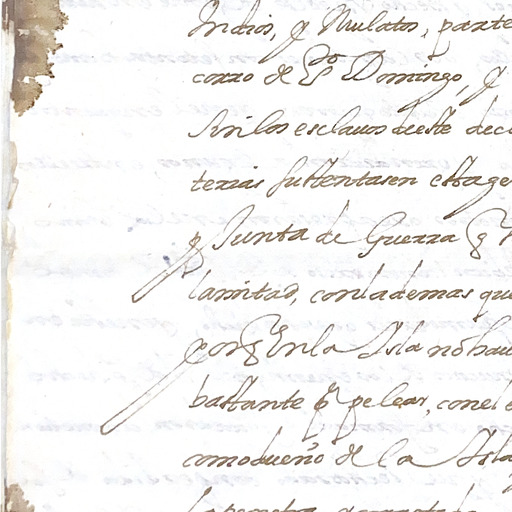 Indios, y Mulatos, parte
corro de Sto Domingo, y
Sin los esclauos deeste dec
terias sustentasen esta ge
y Junta de Guerra q
lamitad, conlademas que
porq enla Isla nohau
bastante pa pelear, conel
comodueño de la Isla